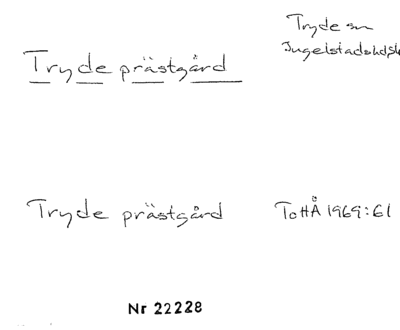 Tryde sn
Ingelstads hd, Sk
Tryde prästgård
Tryde prästgård ToHÅ 1969:61
Nr 22228